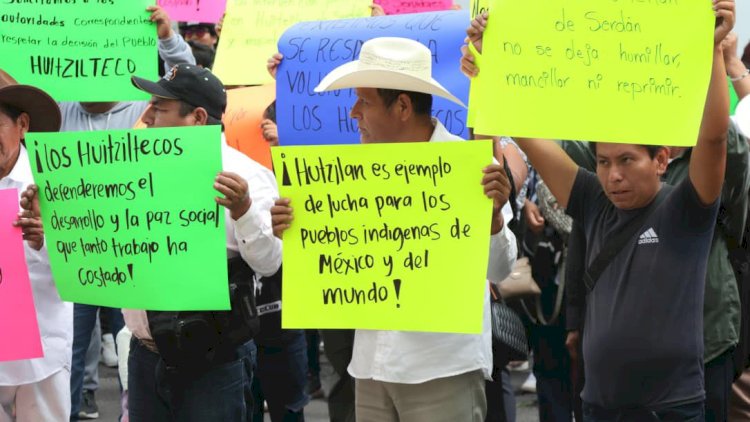 Solicitamos a las
autoridades correspondientes
respetar la decisión del Pueblo
HUITZILTECO
HUITZI
SE RESPE
VOLU
LOS
de Serdán
no se deja humillar,
mancillar ni reprimir.
¡Los Huitziltecos
defenderemos el
desarrollo y la paz social
que tanto trabajo ha
costado!
¡Hutzilan es ejemplo
de lucha para los
pueblos indigenas de
México y del
mundo!
adidas
CLUB